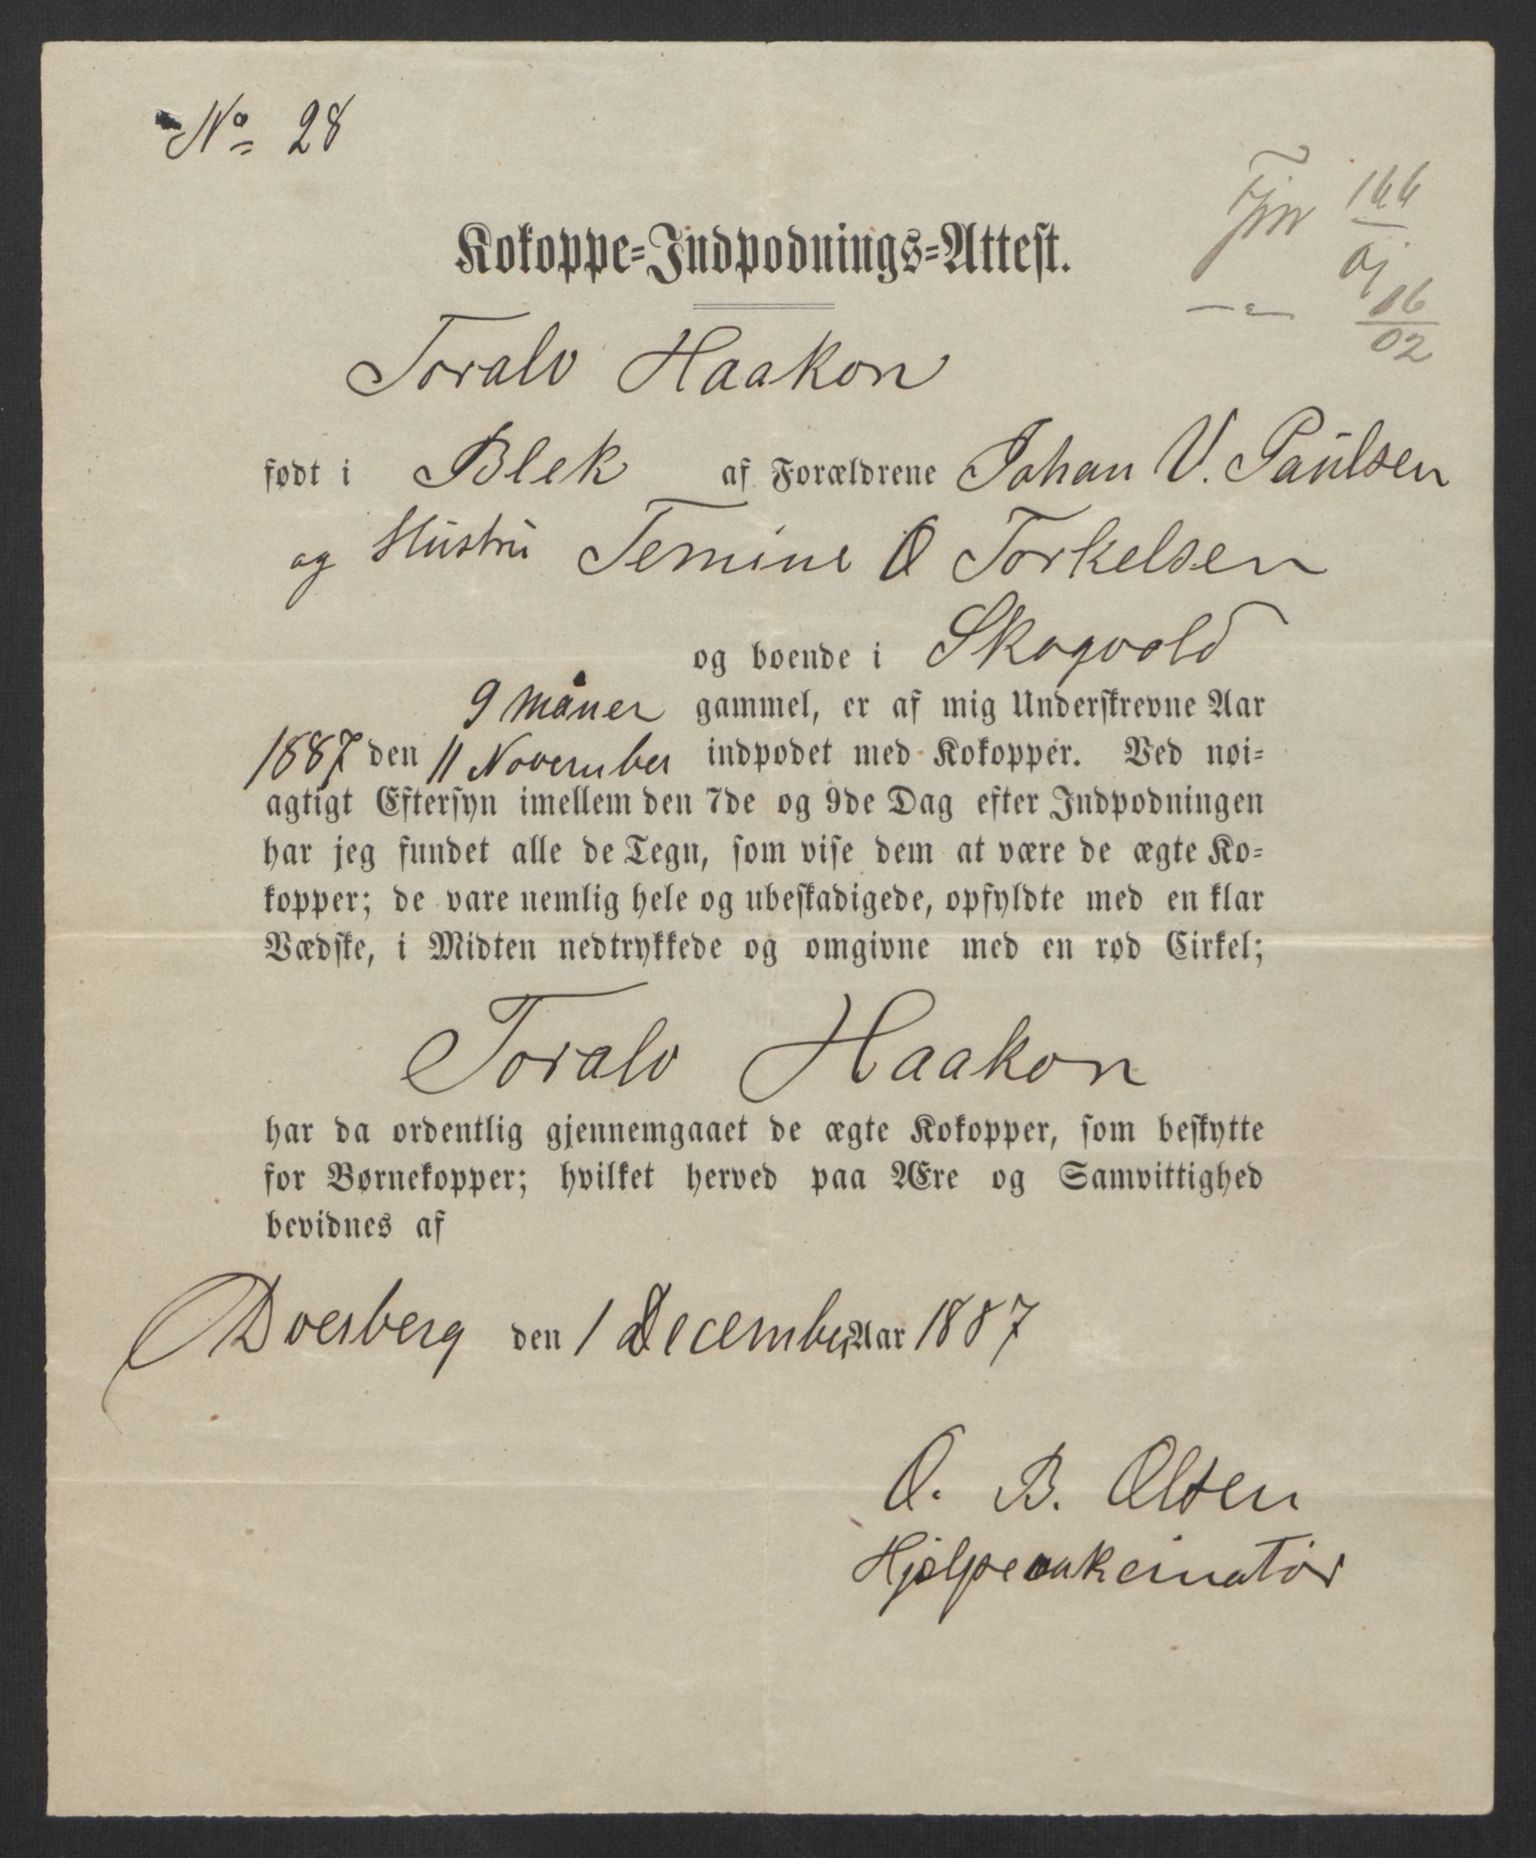 No 28
166
Kokoppe-Indpodnings-Attest.
16
02
Toralv Haakon
født i Blek af Forældrene Johan V. Paulsen
og Hustru Temine O Torkelsen
og boende i Skogvold
9 måner gammel, er af mig Underskrevne Aar
1887 den 11 November indpodet med Kokopper. Ved nøi-
agtigt Eftersyn imellem den 7de og 9de Dag efter Indpodningen
har jeg fundet alle de Tegn, som vise dem at være de ægte Ko-
kopper; de vare nemlig hele og ubeskadigede, opfyldte med en klar
Vædske, i Midten nedtrykkede og omgivne med en rød Cirkel;
Toralv Haakon
har da ordentlig gjennemgaaet de ægte Kokopper, som beskytte
for Børnekopper; hvilket herved paa Ære og Samvittighed
bevidnes af
Dverberg den 1 December Aar 1887
O. B. Olsen
Hjelpevakcinatør